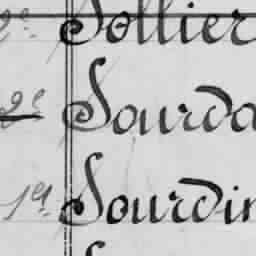 2e Sollier
2e Sourda
19 Sourdin